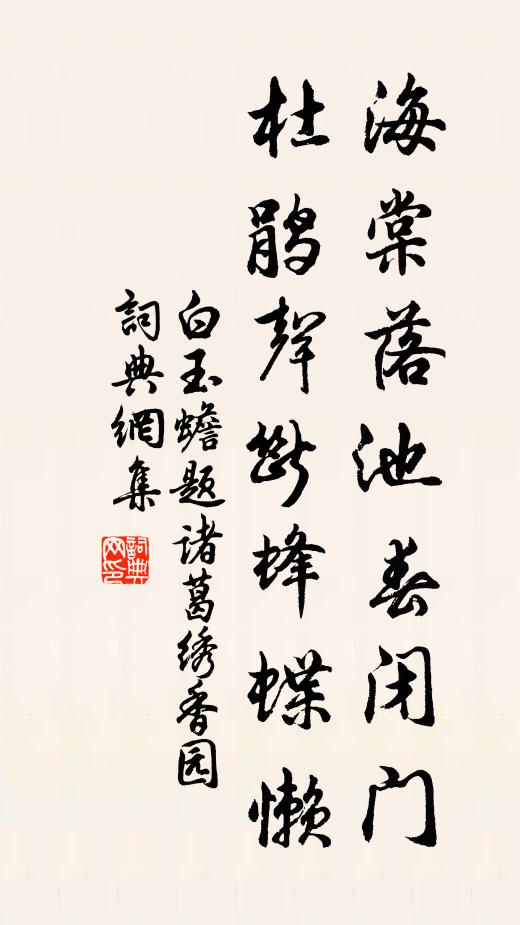 海棠落池春闭门
杜鹃聲斷蜂蝶懒
白玉蟾题诸葛绣香园
詞典網集
詞典网印